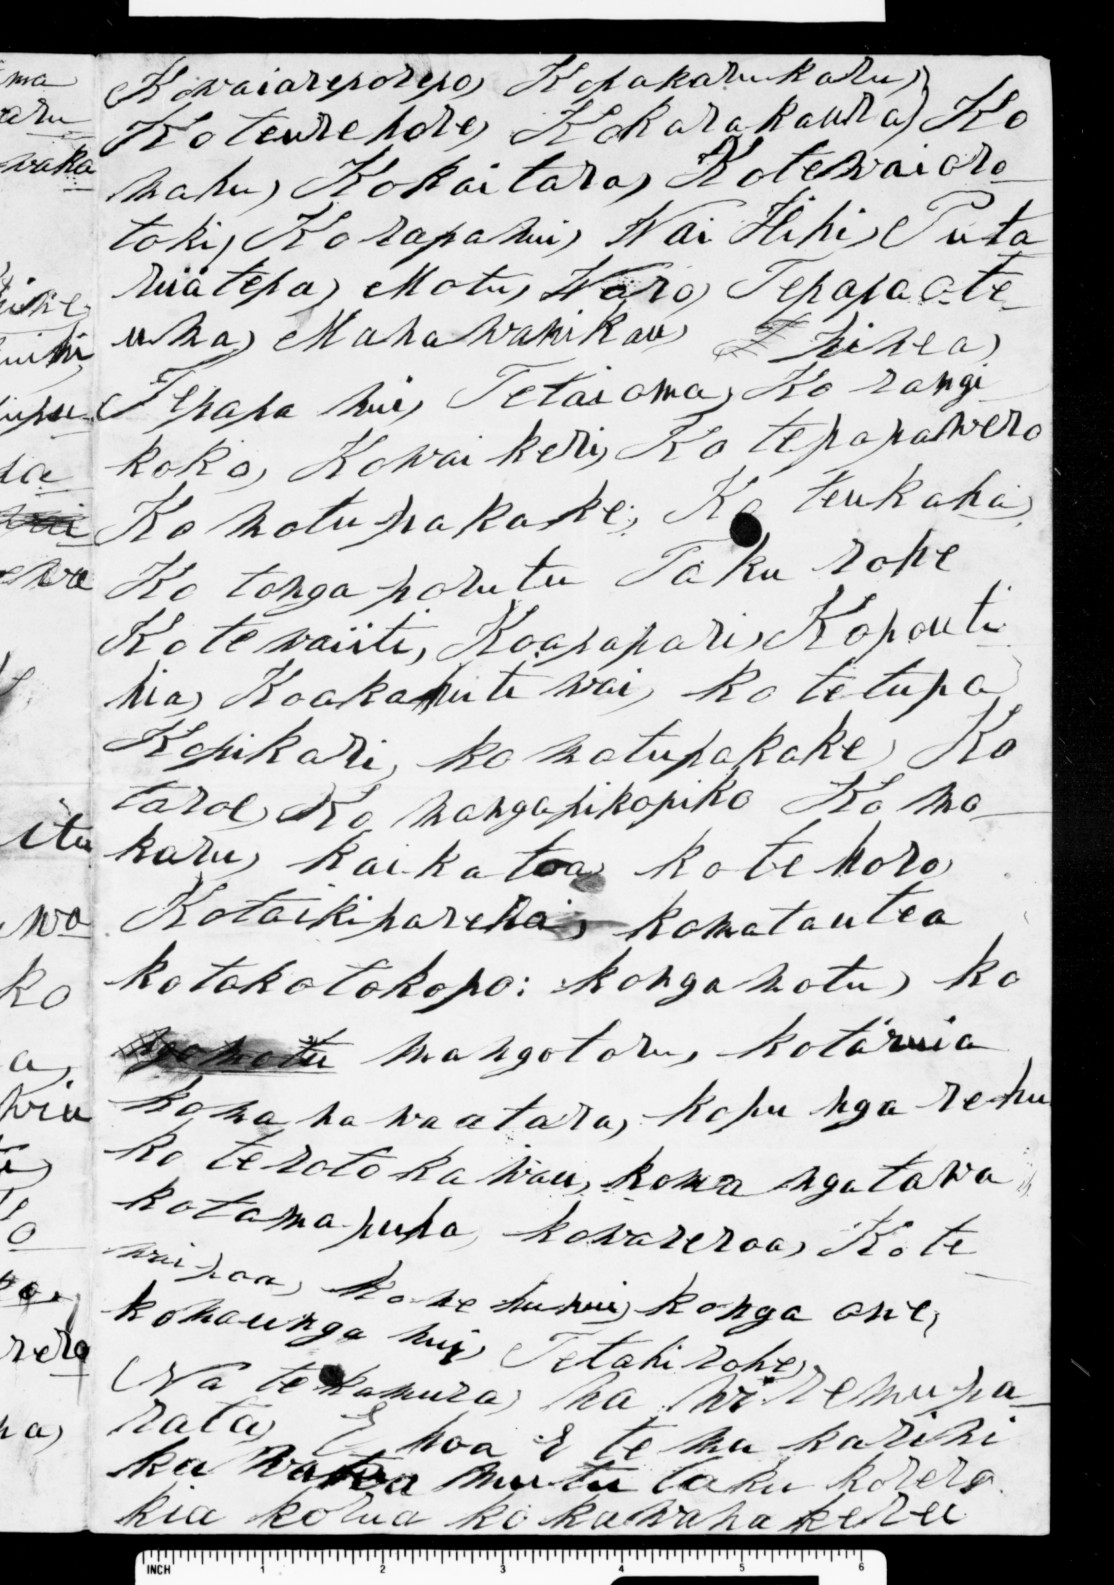 Kowaiarepорepo, Kopakarukaru,
Koteurehore, Kokarakaura, Ko
mahu, Kokaitara, Kotewaioro
toki, Korapanui, Wai Hihi, Puta
ruatepa, Motu, Waro, Tepapaote
uha, Mahawahikau, hinea,
Tepapa nui, Tetaioma, Ko rangi
koko, Kowai keri, Ko tepapawero
Ko motu pakake, Ko teukaha,
Ko tonga porutu Taku rohe
Kote waiiti, Koapapari, Kopouti
hia, Koakahuti wai, ko tetupa
Kopikari, ko motupakake, Ko
taroe, Ko mangapikopiko Ko mo
karu, kaikatoa, ko te horo,
Kotaikiparekai, komatautea
kotokotokopo: kongamotu, ko
mangotoru, kotaruia
komahawaatara, kopu nga rehu
ko terotokawau, koma ngatawa
kotamapuha, kowareroa, Ko te
waipoa, kohehunui, konga one,
komaunga nui, Tetahi rohe,
Na te kamura, na wiremu pa
rata, E hoa E te mu karihi
ka mutu taku korero
kia korua ko kawanakerei
ma
waka
pu
itu
wo
ko
a,
wiu
rero